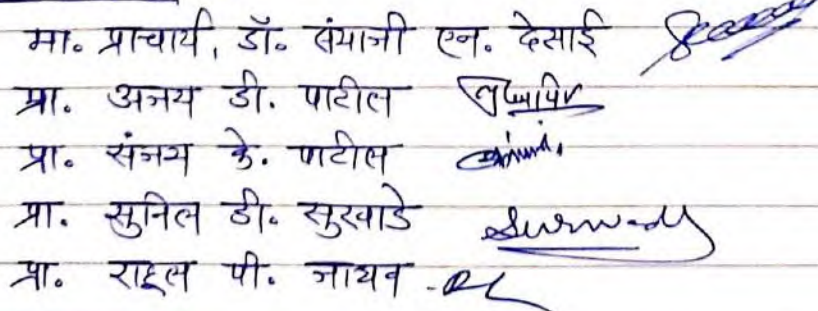 मा. प्राचार्य, डॉ. संयाजी एन. देसाई
प्रा. अजय डी. पाटील
प्रा. संजय के. पाटील
प्रा. सुनिल डी. सुरवाडे
प्रा. राहूल पी. जाधव